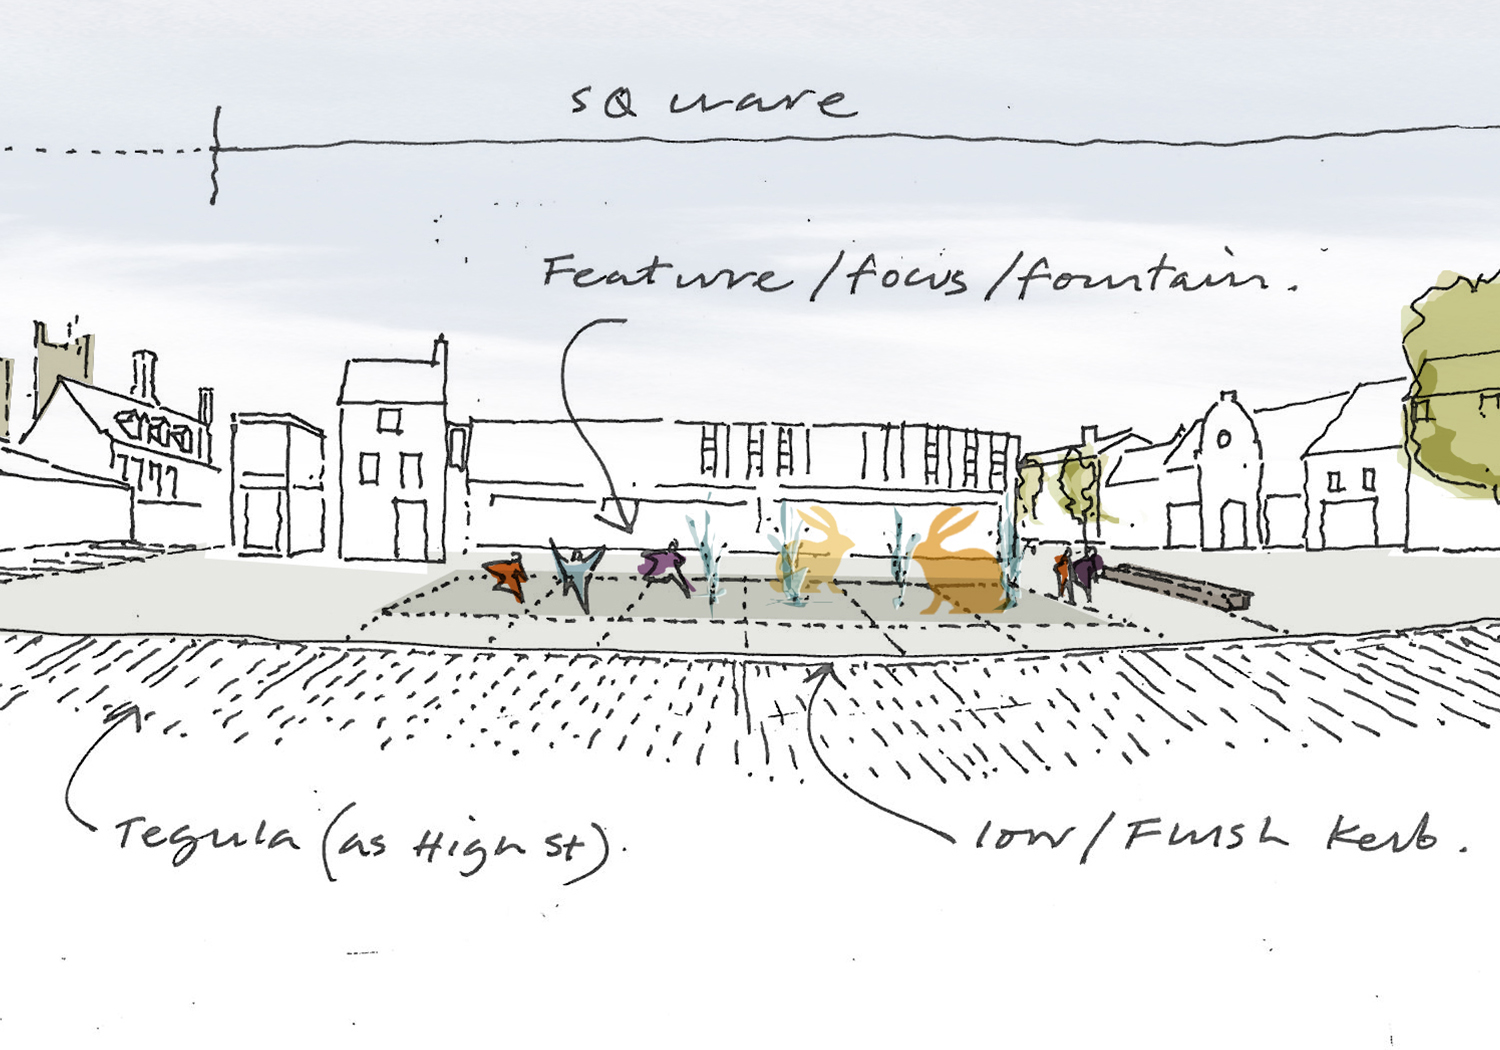 sQuare
Feature/focus/fountain.
Tegula (as High St).
low/Flush Kerb.